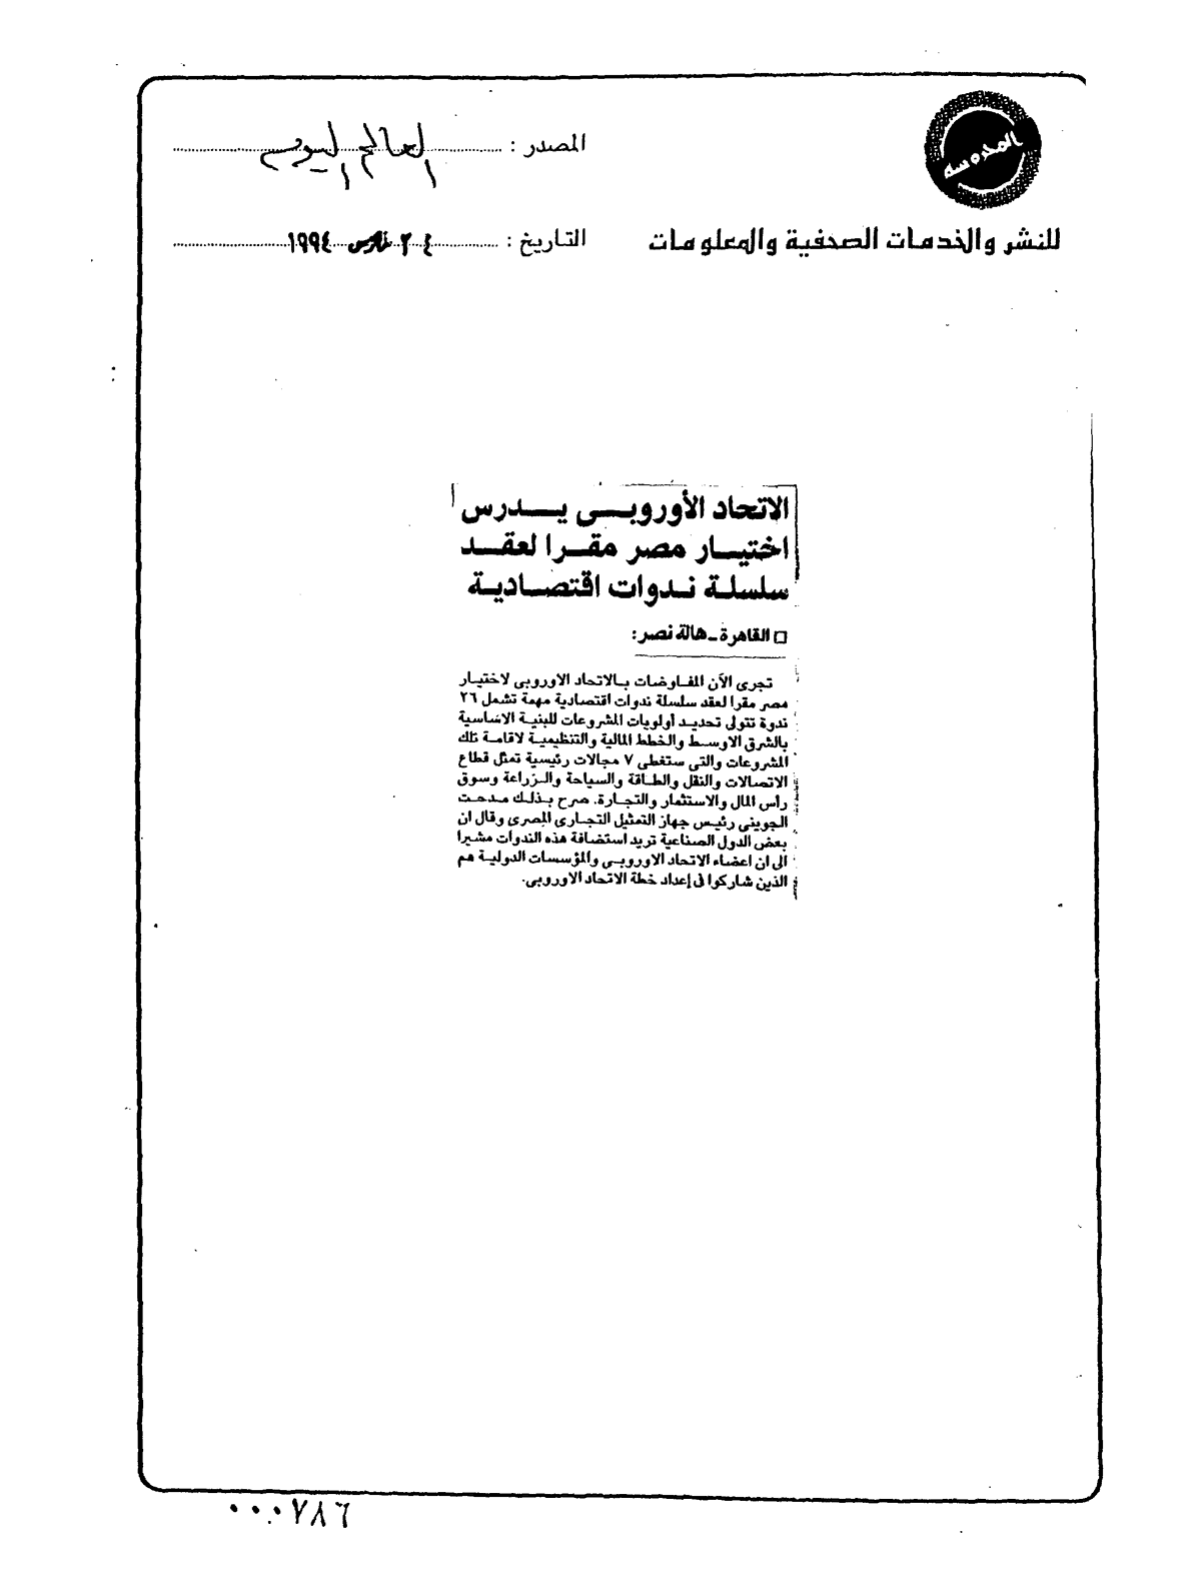 المحروسة
المصدر : العالم اليوم
للنشر والخدمات الصحفية والمعلومات
التاريخ : ٢٤ مارس ١٩٩٤
الاتحاد الأوروبى يدرس
اختيار مصر مقرا لعقد
سلسلة ندوات اقتصادية
□ القاهرة ـ هالة نصر:
تجرى الآن المفاوضات بالاتحاد الاوروبى لاختيار
مصر مقرا لعقد سلسلة ندوات اقتصادية مهمة تشمل ٢٦
ندوة تتولى تحديد أولويات المشروعات للبنية الاساسية
بالشرق الاوسط والخطط المالية والتنظيمية لاقامة تلك
المشروعات والتى ستغطى ٧ مجالات رئيسية تمثل قطاع
الاتصالات والنقل والطاقة والسياحة والزراعة وسوق
رأس المال والاستثمار والتجارة. صرح بذلك مدحت
الجوينى رئيس جهاز التمثيل التجارى المصرى وقال ان
بعض الدول الصناعية تريد استضافة هذه الندوات مشيرا
الى ان اعضاء الاتحاد الاوروبى والمؤسسات الدولية هم
الذين شاركوا فى إعداد خطة الاتحاد الاوروبى.
٠٠٠٧٨٦